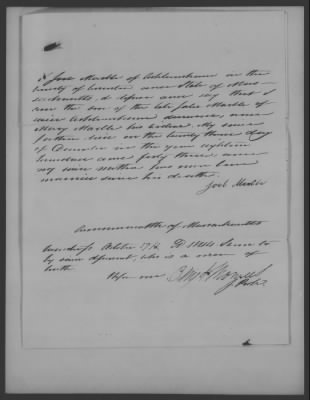 I Joel Marble of Ashburnham in the
County of Worcester and State of Mass-
achusetts, do depose and say that I
am the son of the late John Marble of
said Ashburnham deceased, and
Mary Marble his widow. My said
father died on the twenty third day
of December in the year eighteen
hundred and forty three, and
my said mother has not been
married since his death.
Joel Marble
Commonwealth of Massachusetts
October 17th A.D. 1844 Sworn to
by said deponent, who is a man of
truth.
Before me
J. Peace